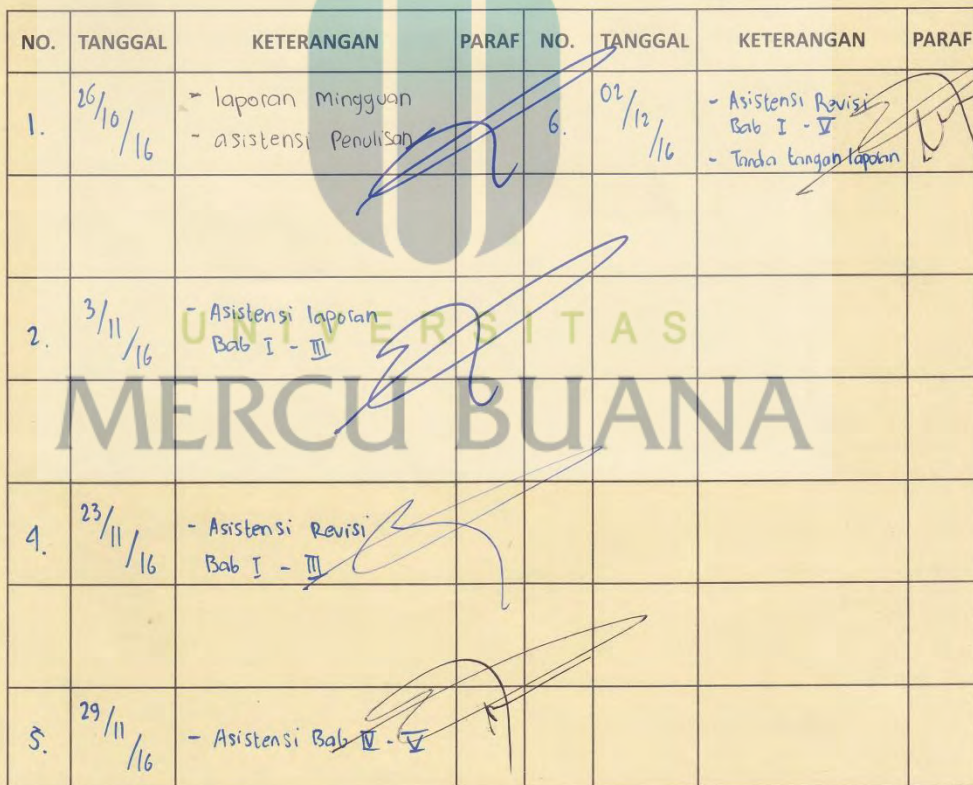 NO. TANGGAL KETERANGAN PARAF NO. TANGGAL KETERANGAN PARAF
1. 26/10/16 - laporan Mingguan
- asistensi Penulisan
6. 02/12/16 - Asistensi Revisi
Bab I - V
- Tanda tangan laporan
2. 3/11/16 - Asistensi laporan
Bab I - III
UNIVERSITAS
MERCU BUANA
4. 23/11/16 - Asistensi Revisi
Bab I - III
5. 29/11/16 - Asistensi Bab IV - V